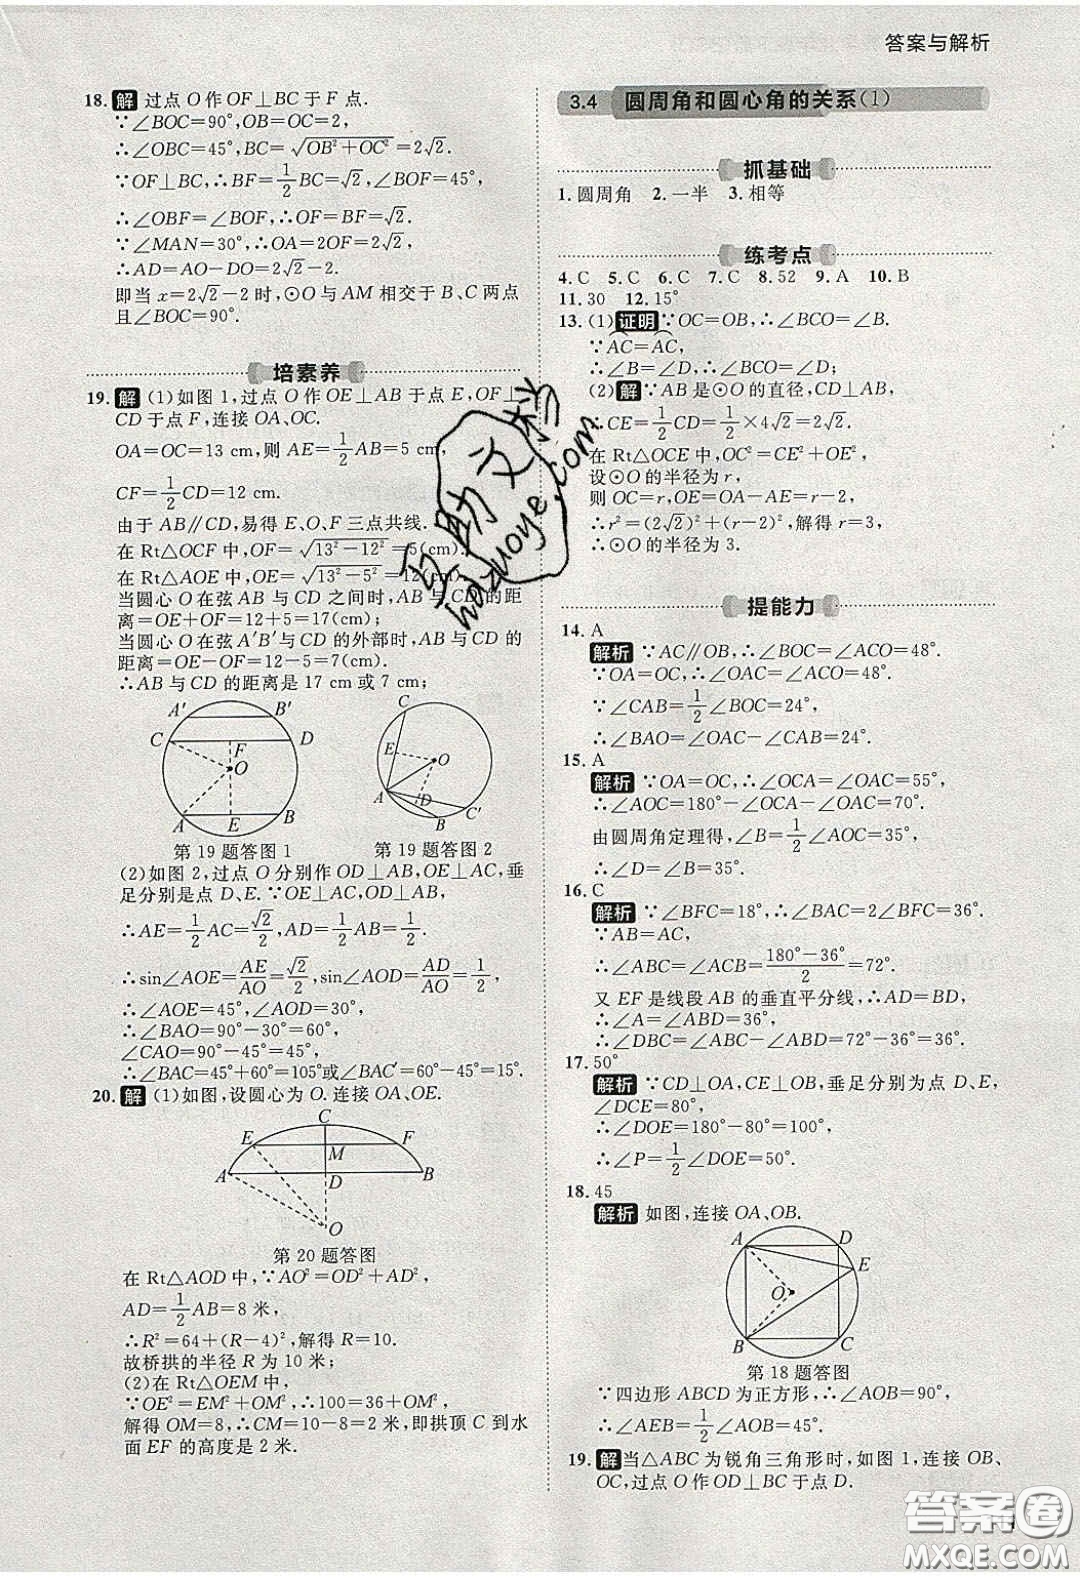 答案与解析
18. 解 过点 O 作 OF⊥BC 于 F 点.
∵∠BOC=90°,OB=OC=2,
∴∠OBC=45°,BC=√(OB²+OC²)=2√2.
∵OF⊥BC,∴BF=1/2BC=√2,∠BOF=45°,
∴∠OBF=∠BOF,∴OF=BF=√2.
∵∠MAN=30°,∴OA=2OF=2√2,
∴AD=AO-DO=2√2-2.
即当 x=2√2-2 时,⊙O 与 AM 相交于 B、C 两点
且∠BOC=90°.
培素养
19. 解 (1)如图 1,过点 O 作 OE⊥AB 于点 E,OF⊥
CD 于点 F,连接 OA、OC.
OA=OC=13 cm,则 AE=1/2AB=5 cm,
CF=1/2CD=12 cm.
由于 AB∥CD,易得 E、O、F 三点共线.
在 Rt△OCF 中,OF=√(13²-12²)=5(cm).
在 Rt△AOE 中,OE=√(13²-5²)=12(cm).
当圆心 O 在弦 AB 与 CD 之间时,AB 与 CD 的距
离=OE+OF=12+5=17(cm);
当圆心 O 在弦 A′B′与 CD 的外部时,AB 与 CD 的
距离=OE-OF=12-5=7(cm).
∴AB 与 CD 的距离是 17 cm 或 7 cm;
A′ B′ C F D O A E B
C E O A D C′ B
第 19 题答图 1 第 19 题答图 2
(2)如图 2,过点 O 分别作 OD⊥AB,OE⊥AC,垂
足分别是点 D、E.∵OE⊥AC,OD⊥AB,
∴AE=1/2AC=√2/2,AD=1/2AB=1/2,
∴sin∠AOE=AE/AO=√2/2,sin∠AOD=AD/AO=1/2,
∴∠AOE=45°,∠AOD=30°,
∴∠BAO=90°-30°=60°,
∠CAO=90°-45°=45°,
∴∠BAC=45°+60°=105°或∠BAC′=60°-45°=15°.
20. 解 (1)如图,设圆心为 O.连接 OA、OE.
C E F M A D B O
第 20 题答图
在 Rt△AOD 中,∵AO²=OD²+AD²,
AD=1/2AB=8 米,
∴R²=64+(R-4)²,解得 R=10.
故桥拱的半径 R 为 10 米;
(2)在 Rt△OEM 中,
∵OE²=EM²+OM²,∴100=36+OM²,
解得 OM=8,∴CM=10-8=2 米,即拱顶 C 到水
面 EF 的高度是 2 米.
3.4 圆周角和圆心角的关系(1)
抓基础
1.圆周角 2.一半 3.相等
练考点
4.C 5.C 6.C 7.C 8.52 9.A 10.B
11.30 12.15°
13.(1)证明 ∵OC=OB,∴∠BCO=∠B.
∵AC=AC,
∴∠B=∠D,∴∠BCO=∠D;
(2)解 ∵AB 是⊙O 的直径,CD⊥AB,
∴CE=1/2CD=1/2×4√2=2√2.
在 Rt△OCE 中,OC²=CE²+OE²,
设⊙O 的半径为 r,
则 OC=r,OE=OA-AE=r-2,
∴r²=(2√2)²+(r-2)²,解得 r=3,
∴⊙O 的半径为 3.
提能力
14. A
解析 ∵AC∥OB,∴∠BOC=∠ACO=48°.
∵OA=OC,∴∠OAC=∠ACO=48°.
∵∠CAB=1/2∠BOC=24°,
∴∠BAO=∠OAC-∠CAB=24°.
15. A
解析 ∵OA=OC,∴∠OCA=∠OAC=55°,
∴∠AOC=180°-∠OCA-∠OAC=70°.
由圆周角定理得,∠B=1/2∠AOC=35°,
∴∠D=∠B=35°.
16. C
解析 ∵∠BFC=18°,∴∠BAC=2∠BFC=36°.
∵AB=AC,
∴∠ABC=∠ACB=(180°-36°)/2=72°.
又 EF 是线段 AB 的垂直平分线,∴AD=BD,
∴∠A=∠ABD=36°,
∴∠DBC=∠ABC-∠ABD=72°-36°=36°.
17. 50°
解析 ∵CD⊥OA,CE⊥OB,垂足分别为点 D、E,
∠DCE=80°,
∴∠DOE=180°-80°=100°,
∴∠P=1/2∠DOE=50°.
18. 45
解析 如图,连接 OA、OB.
A D E O B C
第 18 题答图
∵四边形 ABCD 为正方形,∴∠AOB=90°,
∴∠AEB=1/2∠AOB=45°.
19. 解 当△ABC 为锐角三角形时,如图 1,连接 OB、
OC,过点 O 作 OD⊥BC 于点 D.
答案圈
MXQE.COM